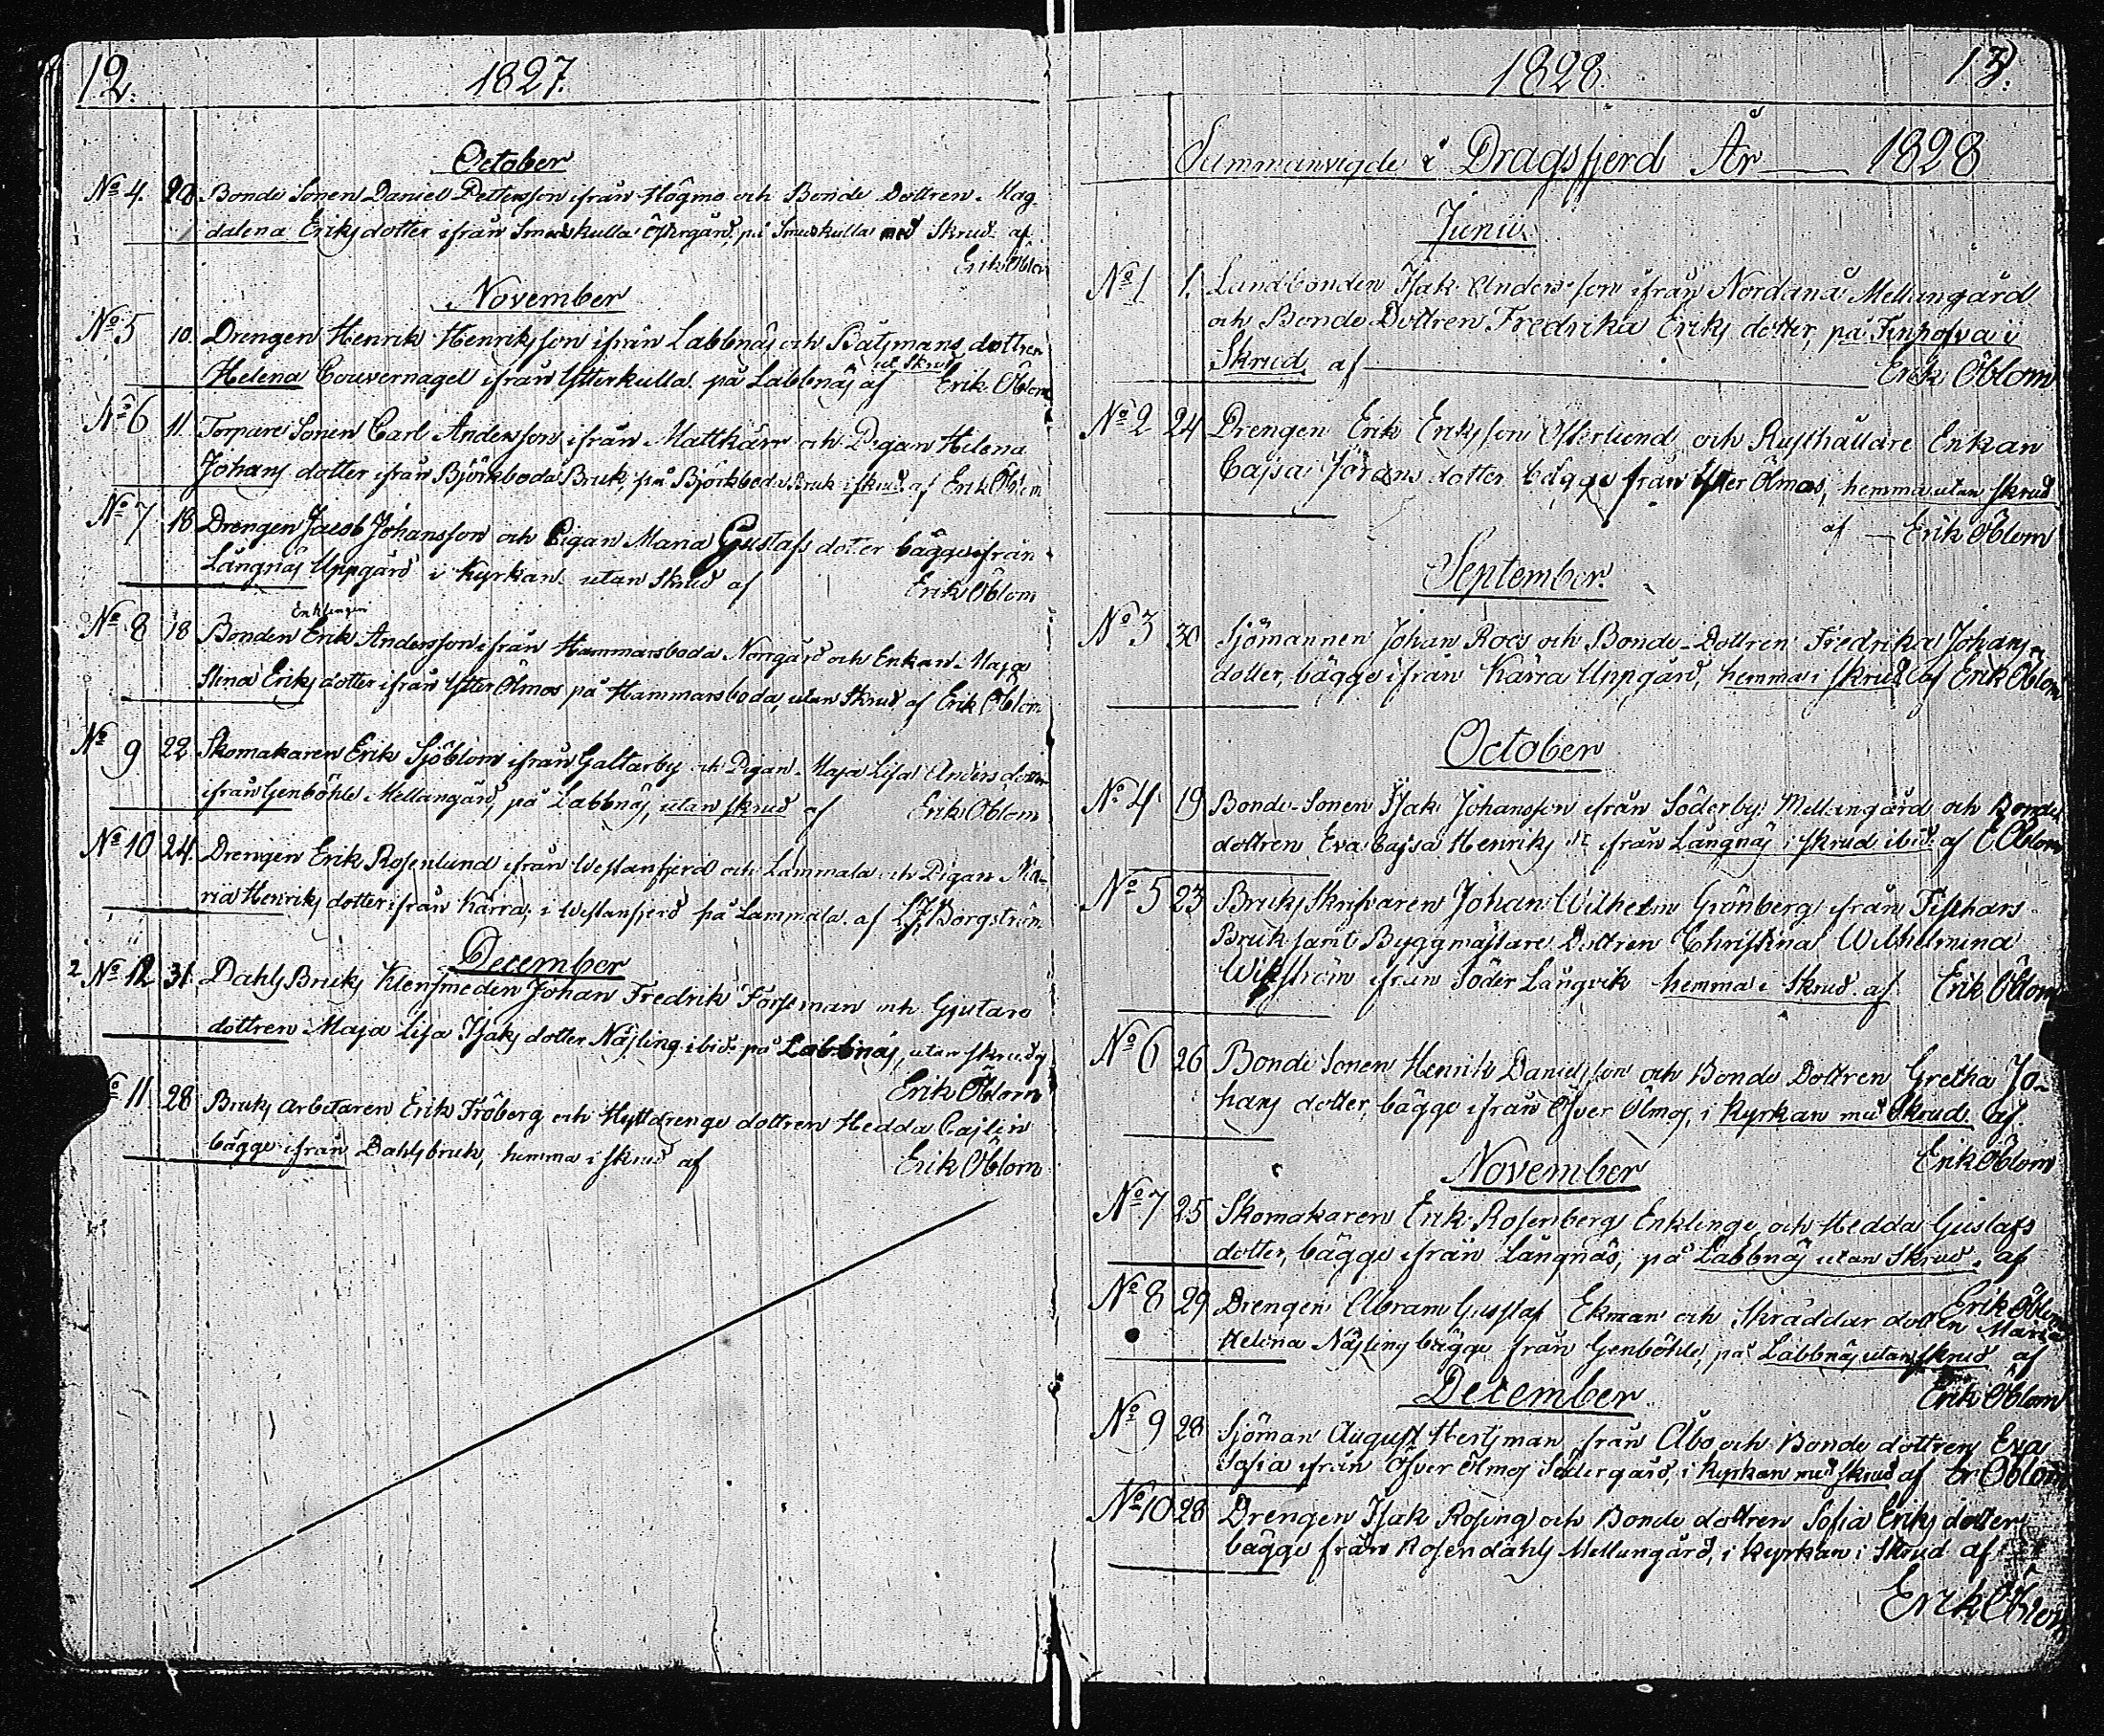 12.
1827.
October
No 4. 20 Bonde Sonen Daniel Pettersson ifrån Högmo och Bonde Dottren Mag-
dalena Eriksdotter ifrån Smedskulla Östergård, på Smedskulla med Skrud af
Erik Öblom
November
No 5 10. Drengen Henrik Henriksson ifrån Labbnäs och Båtsmans dottren
Helena Couvernagel ifrån Ytterkulla på Labbnäs ut. Skrud af Erik Öblom
No 6 11. Torpare Sonen Carl Andersson ifrån Mattkärr och Pigan Helena
Johans dotter ifrån Björkboda Bruk, på Björkboda Bruk i skrud af Erik Öblom
No 7 18 Drengen Jacob Johansson och Pigan Maria Gustafs doter bägge ifrån
Långnäs Uppgård i Kyrkan utan Skrud af Erik Öblom
No 8 18 Bonden Enklingen Erik Andersson ifrån Hammarsboda Norrgård och Enkan Maja
Stina Eriks dotter ifrån Ytter Ölmos på Hammarsboda, utan Skrud af Erik Öblom
No 9 22 Skomakaren Erik Sjöblom ifrån Galtarby och Pigan Maja Lisa Anders dotter
ifrån Genböhle Mellangård, på Labbnäs, utan skrud af Erik Öblom
No 10 24. Drengen Erik Rosenlund ifrån Westanfjerd och Lammala och Pigan Ma-
ria Henriks dotter ifrån Kärra, i Westanfjerd på Lammala af Borgström
December
2 No 12 31. Dahls Bruks Klensmeden Johan Fredrik Forssman och Gjutare
dottren Maja Lisa Isaks dotter Näsling ibid. på Labbnäs, utan skrud af
Erik Öblom
No 11. 28 Bruks arbetaren Erik Fröberg och Hyttdrenge dottren Hedda Cajlin
bägge ifrån Dahlsbruk, hemma i skrud af Erik Öblom
1828.
13.
Sammanvigde i Dragsfjerd År 1828
Junii.
No 1 1. Landbonden Isak Andersson ifrån Nordanå Mellangård
och Bonde Dottren Fredrika Eriks dotter, på Finnhofva i
Skrud af Erik Öblom
No 2 24 Drengen Erik Eriksson Österlund och Rusthållare Enkan
Cajsa Jörans dotter bägge från Ytter Ölmos, hemma utan skrud
af Erik Öblom
September.
No 3 30 Sjömannen Johan Roos och Bonde-Dottren Fredrika Johans
dotter, bägge ifrån Kärra Uppgård, hemma i skrud af Erik Öblom
October
No 4. 19 Bonde-Sonen Isak Johansson ifrån Söderby Mellangård och Bonde
dottren Eva Cajsa Henriks dr ifrån Långnäs i skrud ibid. af E Öblom
No 5 23 Bruks Skrifvaren Johan Wilhelm Grönberg ifrån Fiskars
Bruk samt Byggmästare Dottren Christina Wilhelmina
Wikström ifrån Söder Långvik hemma i Skrud af Erik Öblom
No 6 26 Bonde Sonen Henrik Danielsson och Bonde Dottren Gretha Jo-
hans dotter, bägge ifrån Öfver Ölmos, i Kyrkan med Skrud af
Erik Öblom
November
No 7 25 Skomakaren Erik Rosenberg Enklinge och Hedda Gustafs
dotter, bägge ifrån Långnäs, på Labbnäs utan Skrud. af
Erik Öblom
No 8 29 Drengen Abram Gustaf Ekman och Skräddar dotten Maria
Helena Näsling bägge från Genböhle, på Labbnäs utan skrud af
Erik Öblom
December
No 9 28 Sjöman August Hertsman från Åbo och Bonde dottren Eva
Sofia ifrån Öfver Ölmos Södergård, i Kyrkan med skrud af Er Öblom
No 10 28 Drengen Isak Rosing och Bonde dottren Sofia Eriks dotter
bägge från Rosendahls Mellangård, i Kyrkan i Skrud af
Erik Öblom